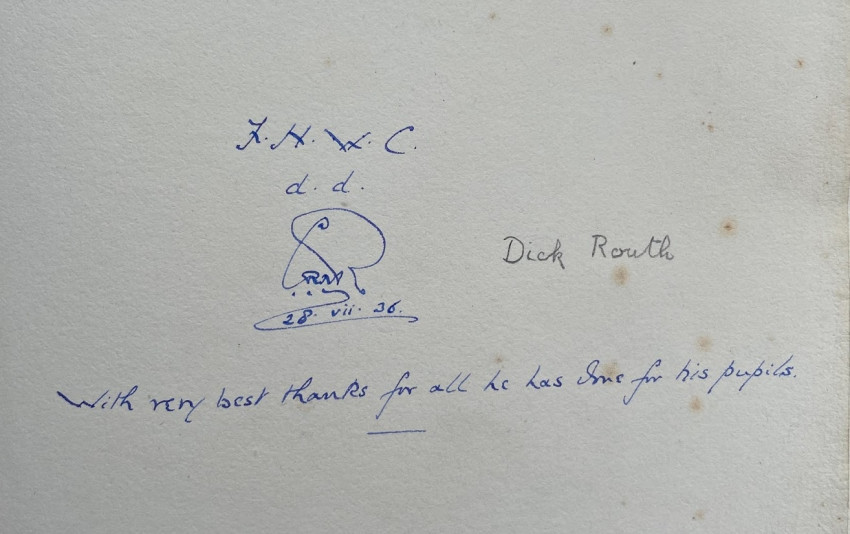 F. H. W. C.
d. d.
Dick Routh
28. vii. 36.
With very best thanks for all he has done for his pupils.